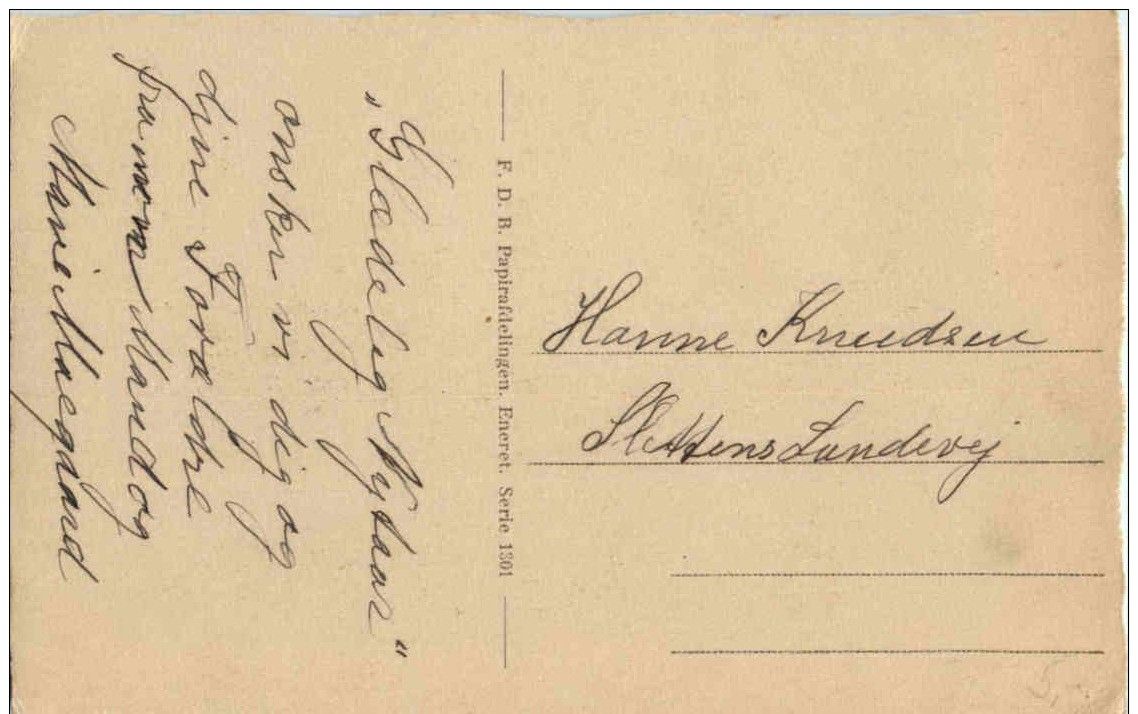 „Glædelig Nytaar“
onsker vi dig og
djine Forældre
fra Mand og
Marie Maegaard
F. D. B. Papirafdelingen. Eneret. Serie 1301
Hanne Knudsen
Slettens Landevej